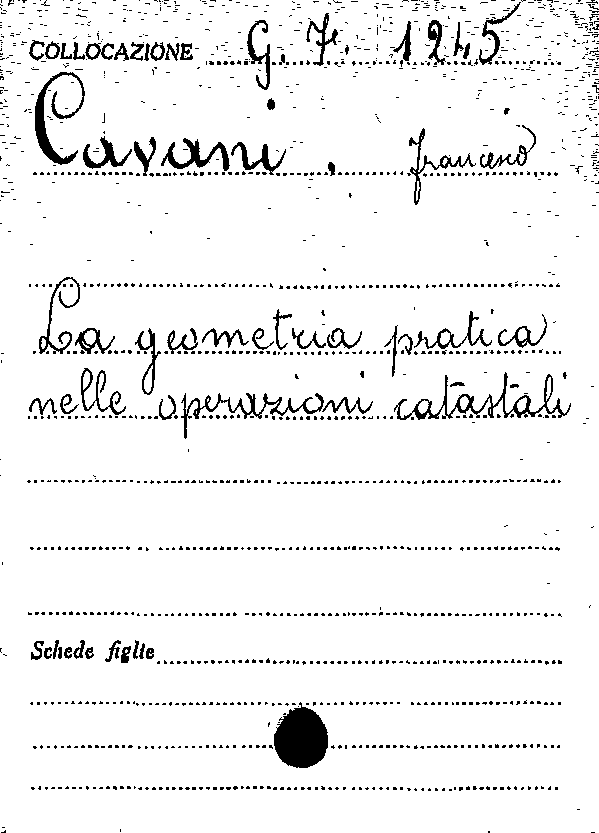 COLLOCAZIONE G. F. 1245
Cavani. francesco
La geometria pratica
nelle operazioni catastali
Schede figlie